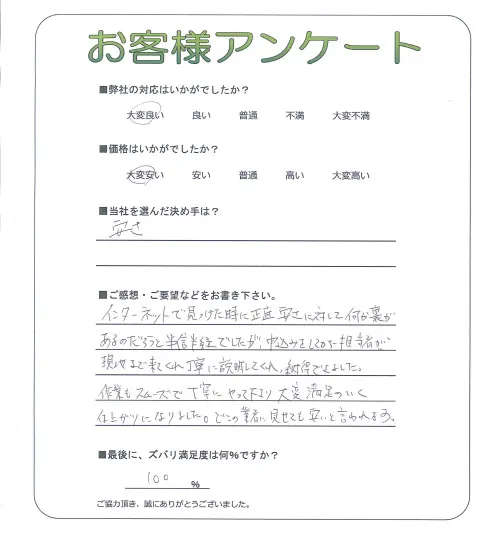 お客様アンケート
■弊社の対応はいかがでしたか？
大変良い 良い 普通 不満 大変不満
■価格はいかがでしたか？
大変安い 安い 普通 高い 大変高い
■当社を選んだ決め手は？
安さ
■ご感想・ご要望などをお書き下さい。
インターネットで見つけた時に正直安さに対して何か裏が
あるのだろうと半信半疑でしたが、申込みをしてみた担当者が
現地まで来てくれ丁寧に説明してくれ、納得できました。
作業もスムーズで丁寧にやって下さり大変満足のいく
仕上がりになりました。どこの業者に見せても安いと言われる
■最後に、ズバリ満足度は何％ですか？
100 ％
ご協力頂き、誠にありがとうございました。